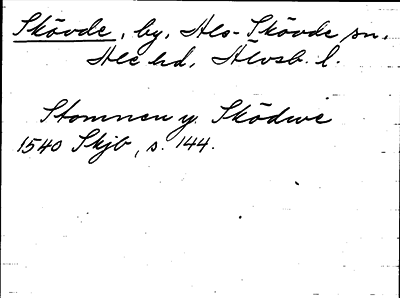 Skövde, by, Als-Skövde sn,
Ale hd, Älvsb. l.
Stomnen y Sködwe
1540 Skjb, s. 144.